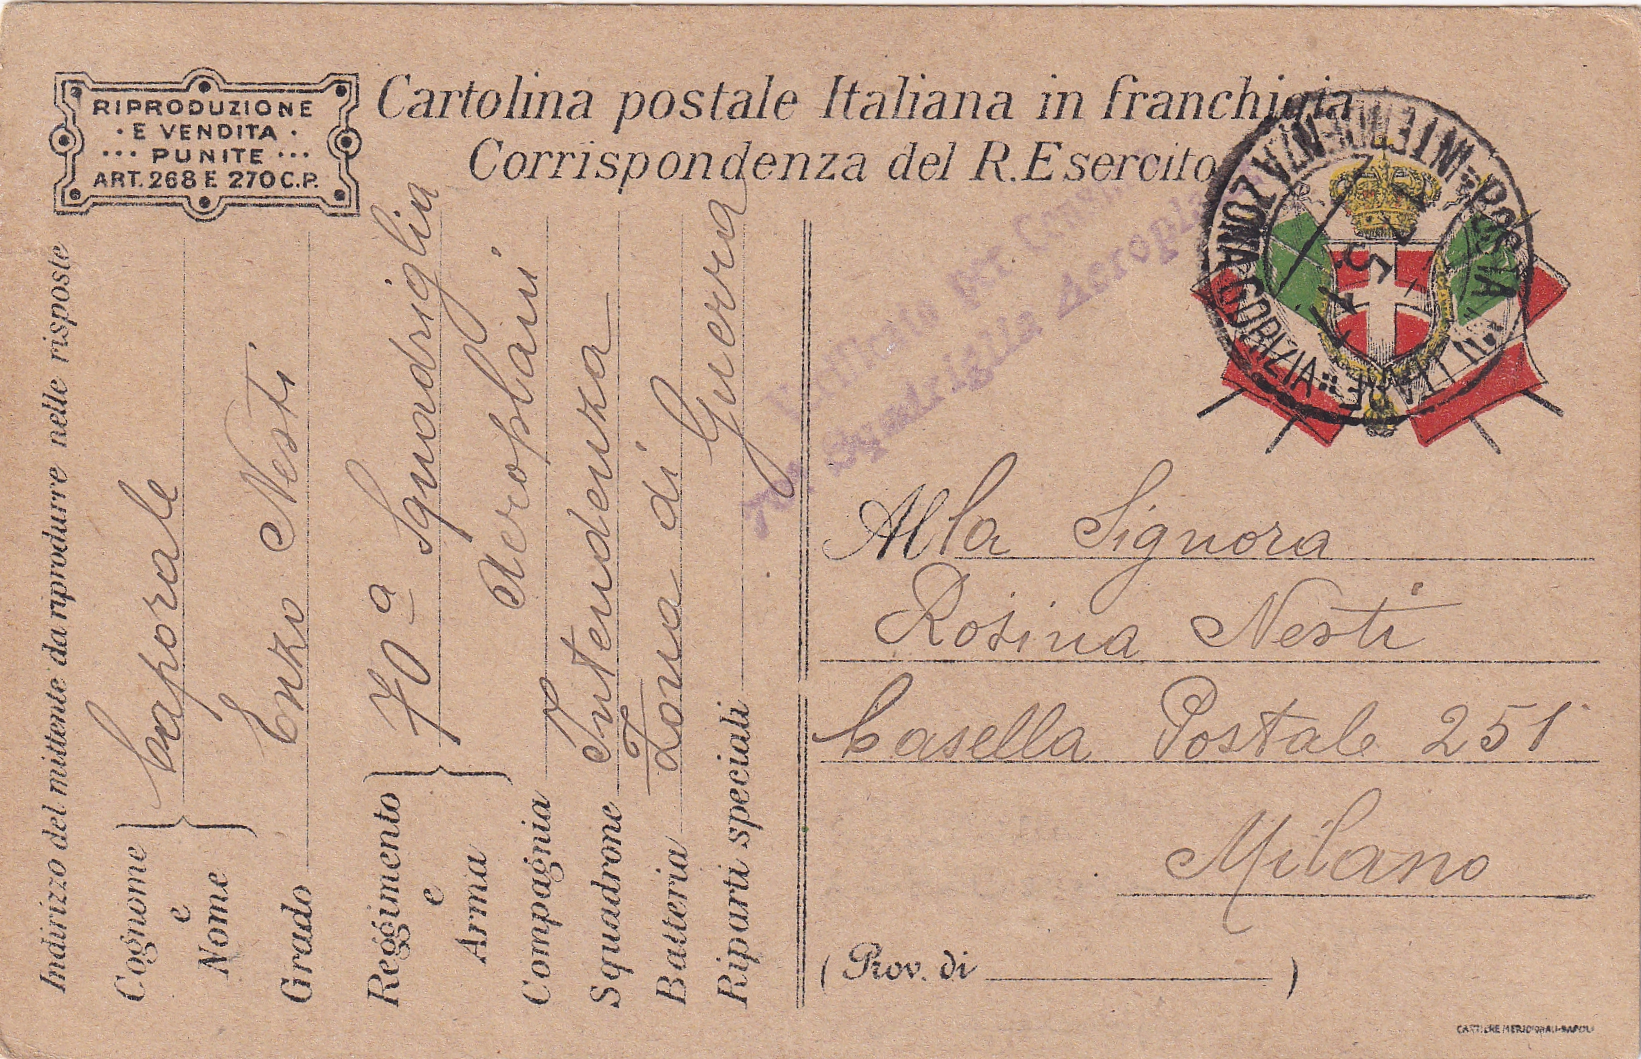 RIPRODUZIONE
· E VENDITA ·
··· PUNITE ···
ART. 268 E 270 C.P.
Cartolina postale Italiana in franchigia
Corrispondenza del R. Esercito
Indirizzo del mittente da riprodurre nelle risposte
Cognome e Nome
Caporale
Enzo Nesti
Grado
Reggimento e Arma
70a Squadriglia
Aeroplani
Compagnia
Intendenza
Squadrone
Zona di Guerra
Batteria
Riparti speciali
Verificato per
70a Squadriglia Aeropla
INTENDENZA ZONA GORIZIA
POSTA MILITARE
Alla Signora
Rosina Nesti
Casella Postale 251
Milano
(Prov. di )
CARTIERE MERIDIONALI-NAPOLI